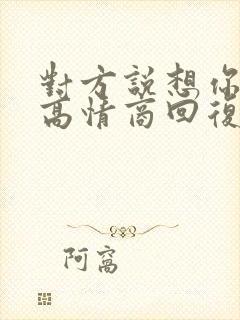 對方說想你
高情商回復
阿窩